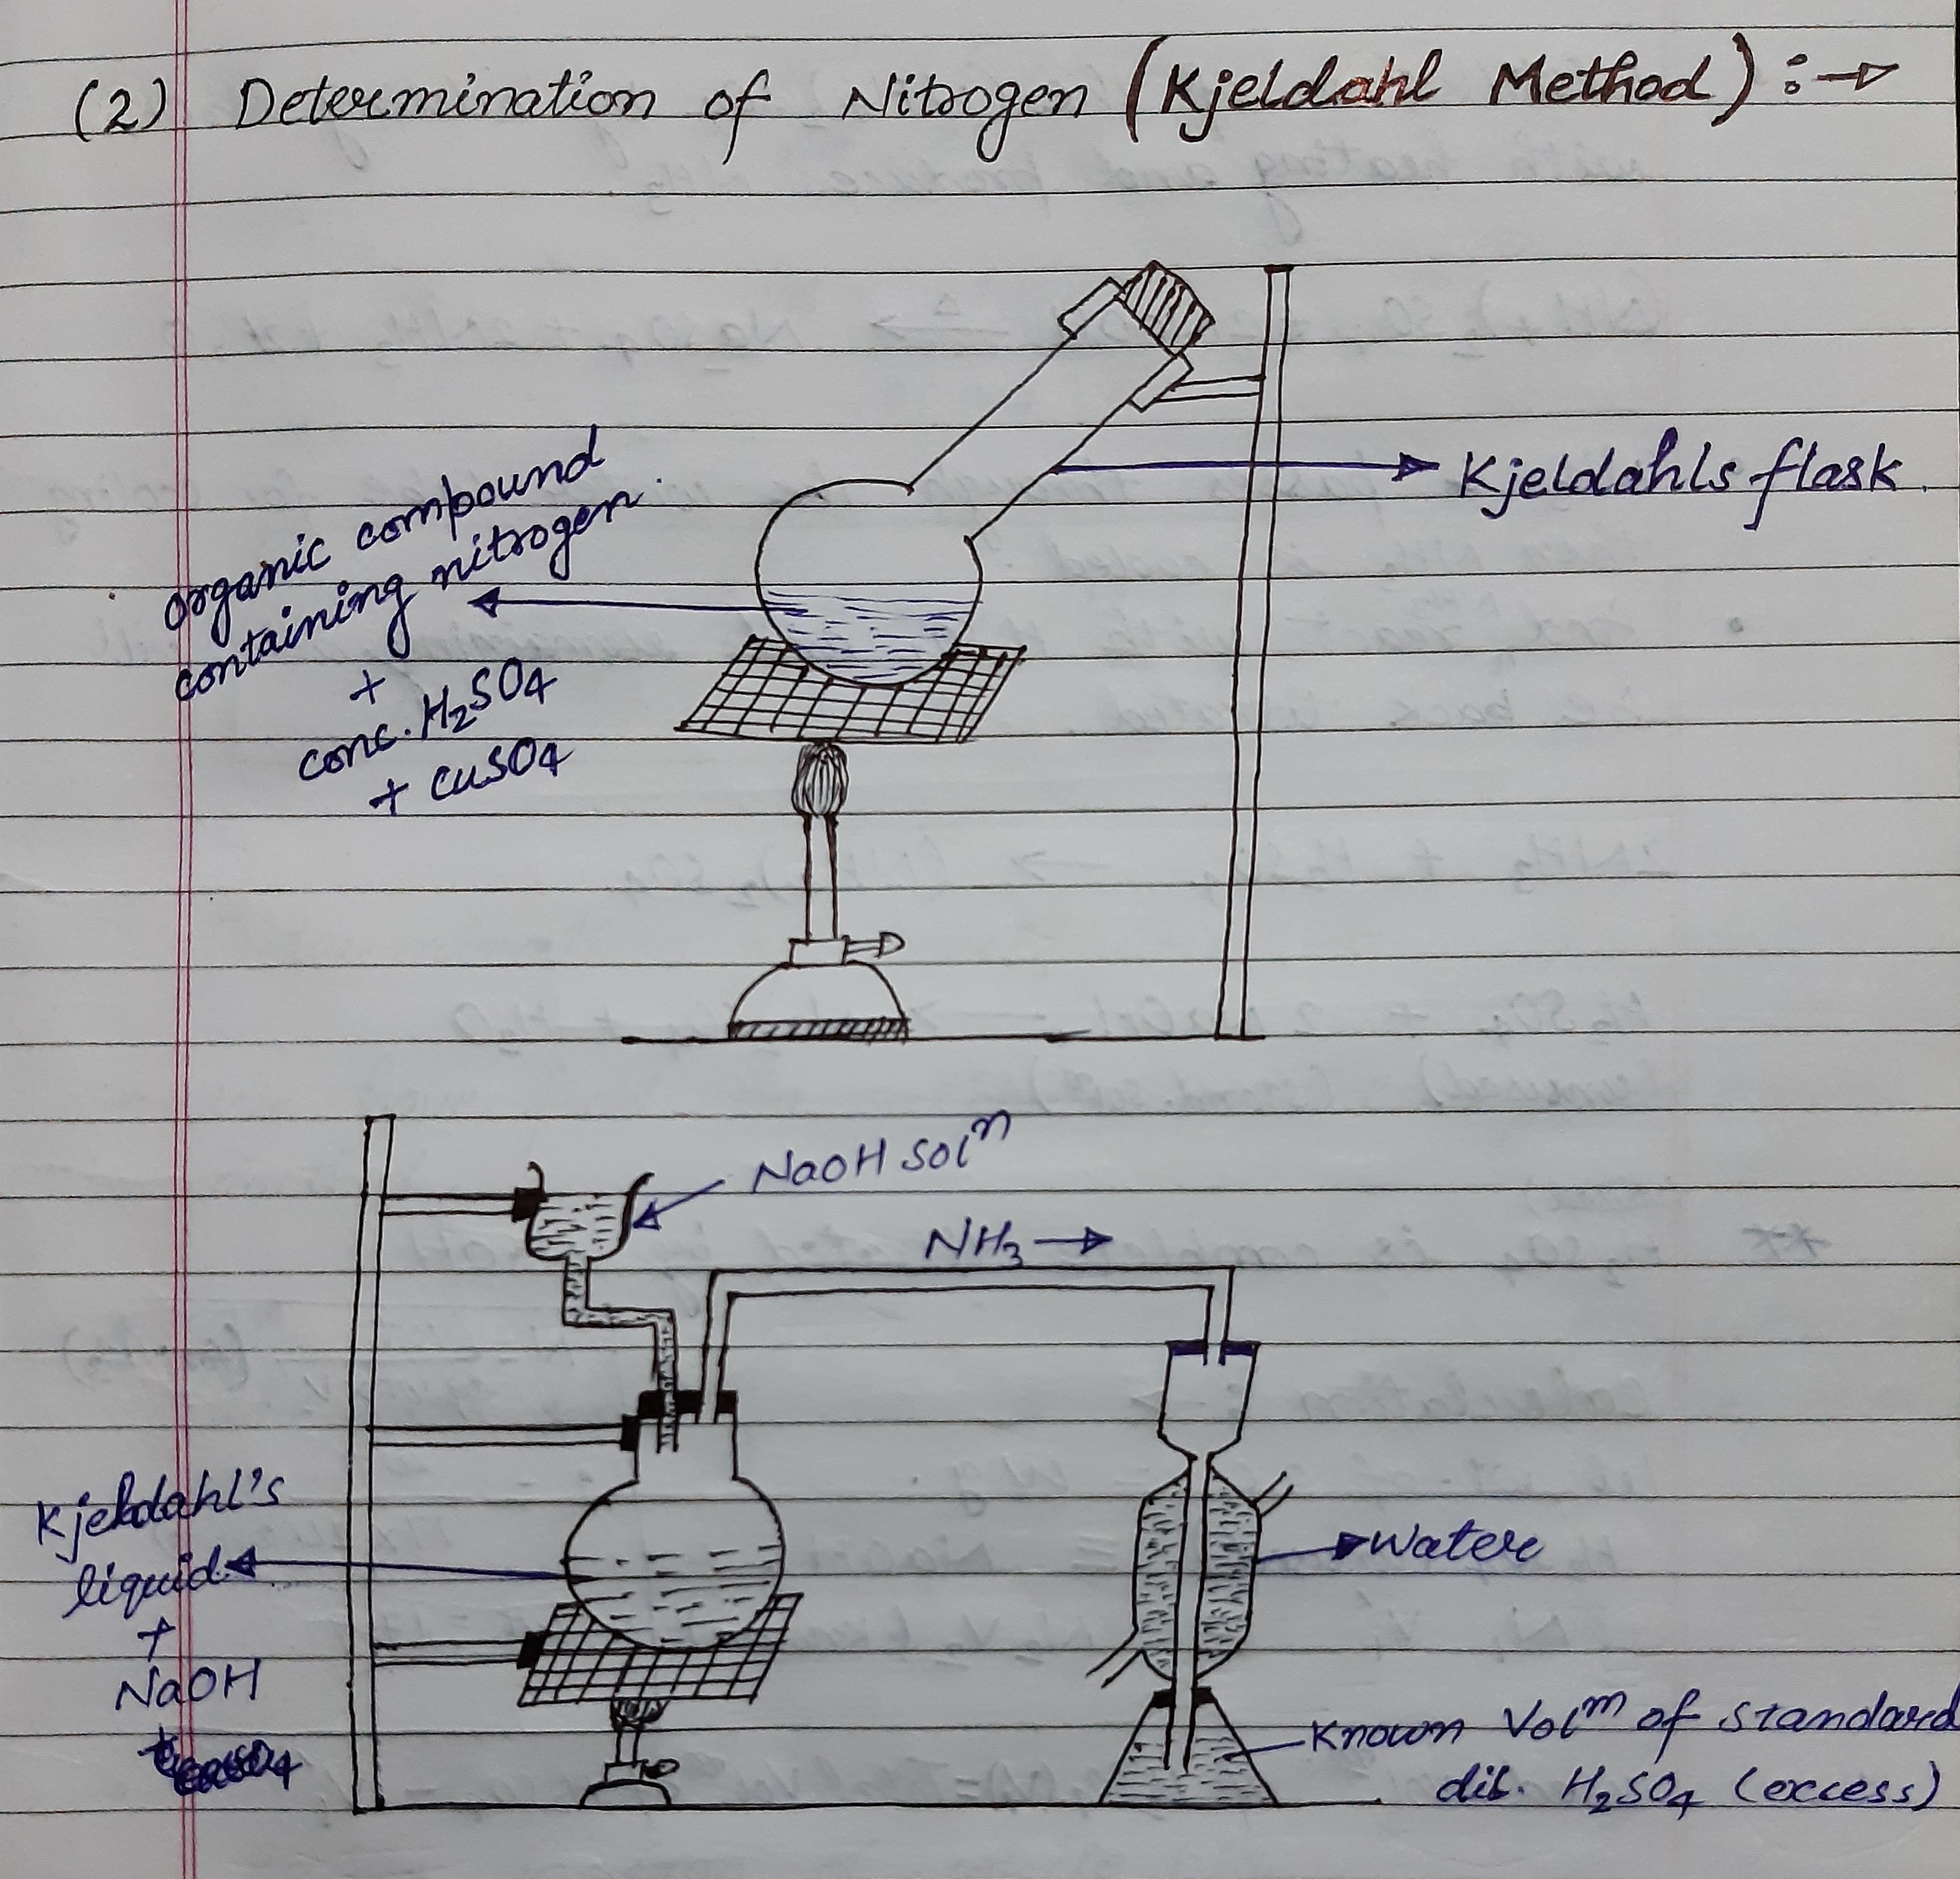 (2) Determination of Nitrogen (Kjeldahl Method) :→
Kjeldahls flask.
organic compound
containing nitrogen.
+
conc. H₂SO₄
+ CuSO₄
NaOH Solⁿ
NH₃ →
Kjeldahl's
liquid
+
NaOH
Water
Known Volᵐ of standard
dil. H₂SO₄ (excess)